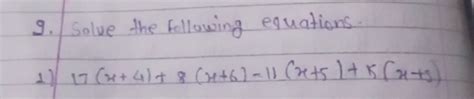 9. Solve the following equations.
1) 17 (x+4) + 8 (x+6) = 11 (x+5) + 15 (x+3)